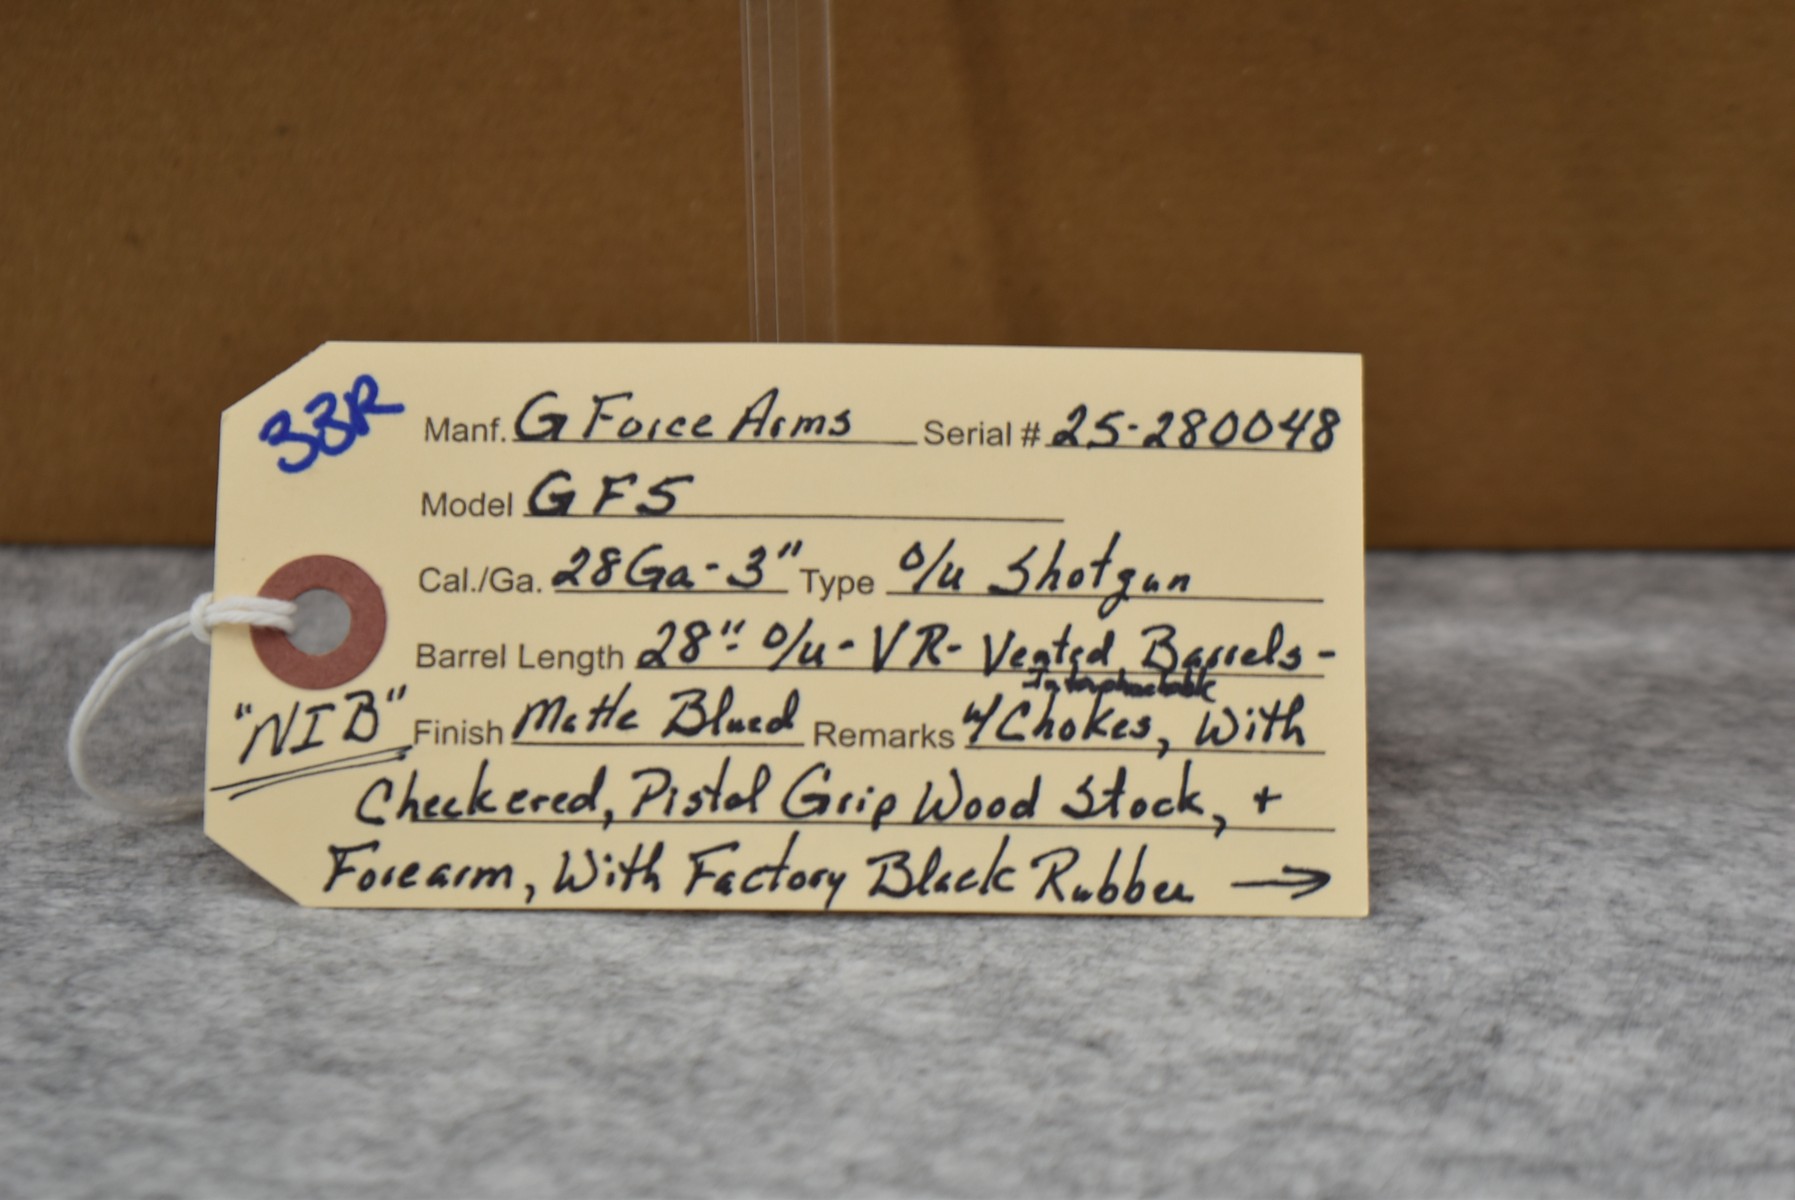 33R
Manf. G Force Arms Serial # 25-280048
Model GF5
Cal./Ga. 28Ga-3" Type O/u Shotgun
Barrel Length 28" O/u - VR - Vented Barrels -
Interchangeable
"NIB" Finish Matte Blued Remarks w/ Chokes, With
Checkered, Pistol Grip Wood Stock, +
Forearm, With Factory Black Rubber →